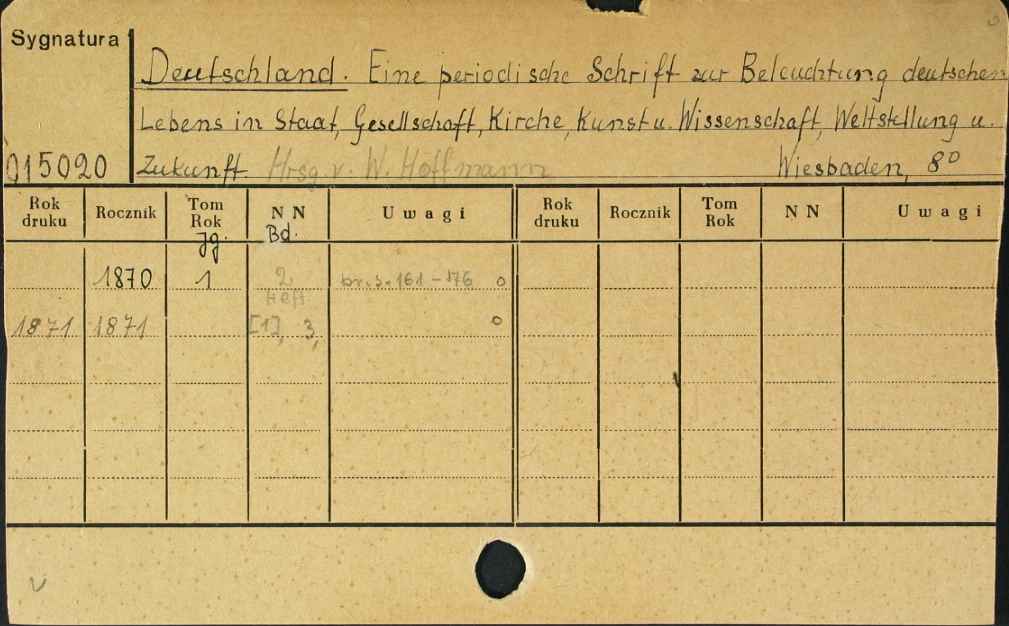 Sygnatura
Deutschland. Eine periodische Schrift zur Beleuchtung deutschen
Lebens in Staat, Gesellschaft, Kirche, Kunst u. Wissenschaft, Weltstellung u.
015020 Zukunft Hrsg. v. W. Hoffmann Wiesbaden, 8°
Rok druku Rocznik Tom Rok NN Uwagi Rok druku Rocznik Tom Rok NN Uwagi
Jg. Bd.
1870 1 2 br. s. 161-176 o
Heft
1871 1871 [1], 3, o
v